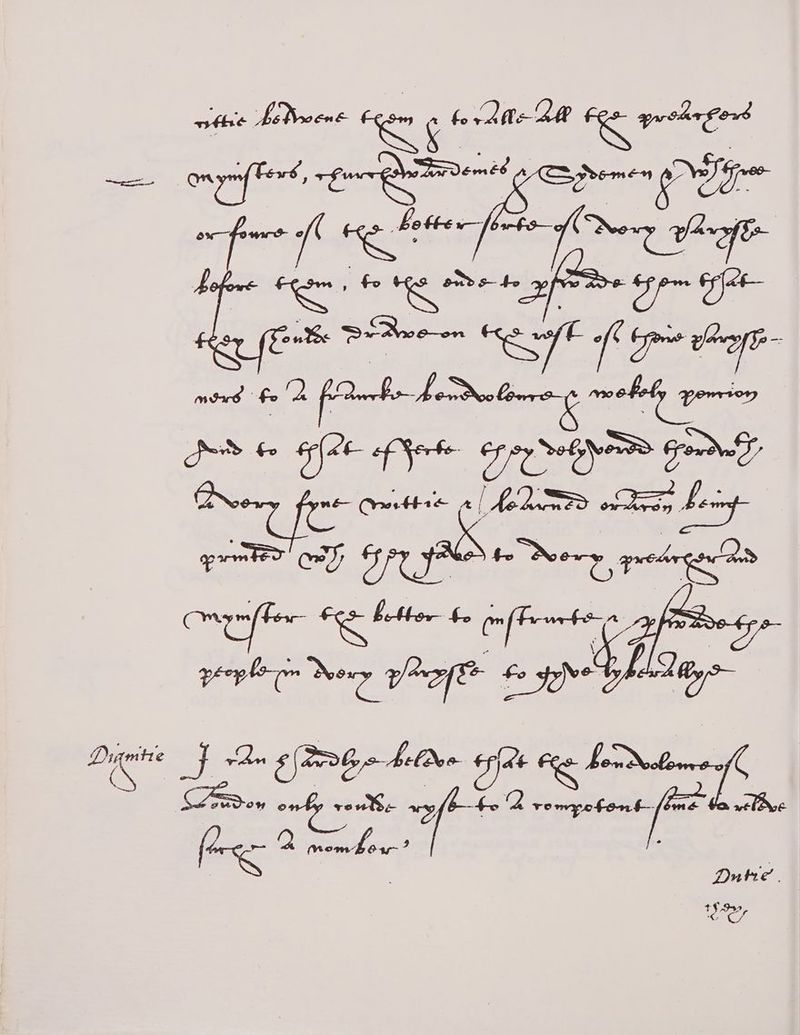 cittie betwene them & to calle all the preachers
mynisters, churchwardenes & Sydemen & wth three
or foure of the better sorte of every paryshe
before them, to the ende to pswade them that
they shoulde drawe on the rest of their paryshe-
ners to a francke benevolence & wekely pention
And to that effecte they delyvered therewth,
A very fyne wittie & learned oracon being
printed wch they gave to every preacher and
mynister the better to instructe & pswade the
people in every paryshe to gyve lyberallye
Dignitie I can hardlye beleve that the benevolence of
London only coulde ryse to a competent some to releve
suche a nomber
Dutie.
They